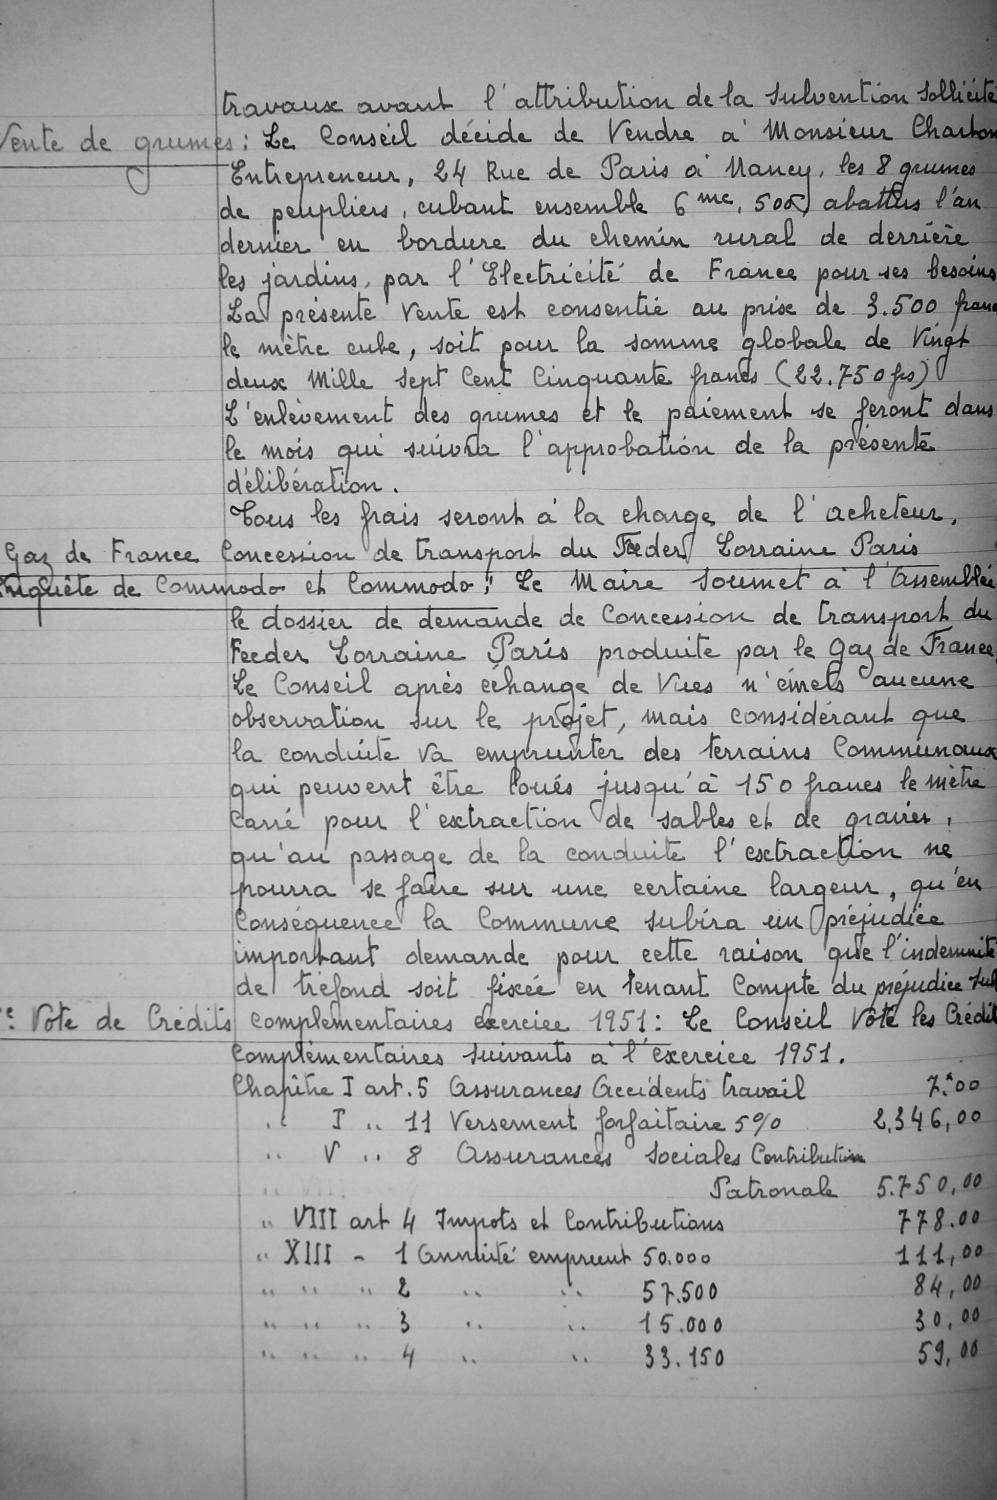 travaux avant l'attribution de la subvention sollicité
Vente de grumes : Le Conseil décide de Vendre à Monsieur Charton
Entrepreneur, 24 Rue de Paris à Nancy, les 8 grumes
de peupliers, cubant ensemble 6 mc, 500, abattus l'an
dernier en bordure du chemin rural de derrière
les jardins, par l'Electricité de France pour ses besoins
La présente Vente est consentie au prix de 3.500 franc
le mètre cube, soit pour la somme globale de Vingt
deux Mille Sept Cent Cinquante francs (22.750 frs)
L'enlèvement des grumes et le paiement se feront dans
le mois qui suivra l'approbation de la présente
délibération.
Tous les frais seront à la charge de l'acheteur.
Gaz de France Concession de transport du Feeder Lorraine Paris
Enquête de Commodo et Commodo : Le Maire soumet à l'Assemblée
le dossier de demande de Concession de transport du
Feeder Lorraine Paris produite par le Gaz de France.
Le Conseil après échange de Vues n'émets aucune
observation sur le projet, mais considérant que
la conduite va emprunter des terrains Communaux
qui peuvent être loués jusqu'à 150 francs le mètre
Carré pour l'extraction de sables et de gravier,
qu'au passage de la conduite l'extraction ne
pourra se faire sur une certaine largeur, qu'en
Conséquence la Commune subira un préjudice
important demande pour cette raison que l'indemnité
de tréfond soit fixée en tenant Compte du préjudice sub
Vote de Crédits complémentaires exercice 1951 : Le Conseil Vote les Crédit
Complémentaires suivants à l'exercice 1951.
Chapître I art. 5 Assurances Accidents travail 7.00
.. I .. 11 Versement forfaitaire 5% 2.346,00
.. V .. 8 Assurances Sociales Contribution
Patronale 5.750,00
.. VIII art 4 Impots et Contributions 778.00
.. XIII - 1 Annuité emprunt 50.000 111,00
.. .. .. 2 .. .. 57.500 84,00
.. .. .. 3 .. .. 15.000 30,00
.. .. .. 4 .. .. 33.150 59,00